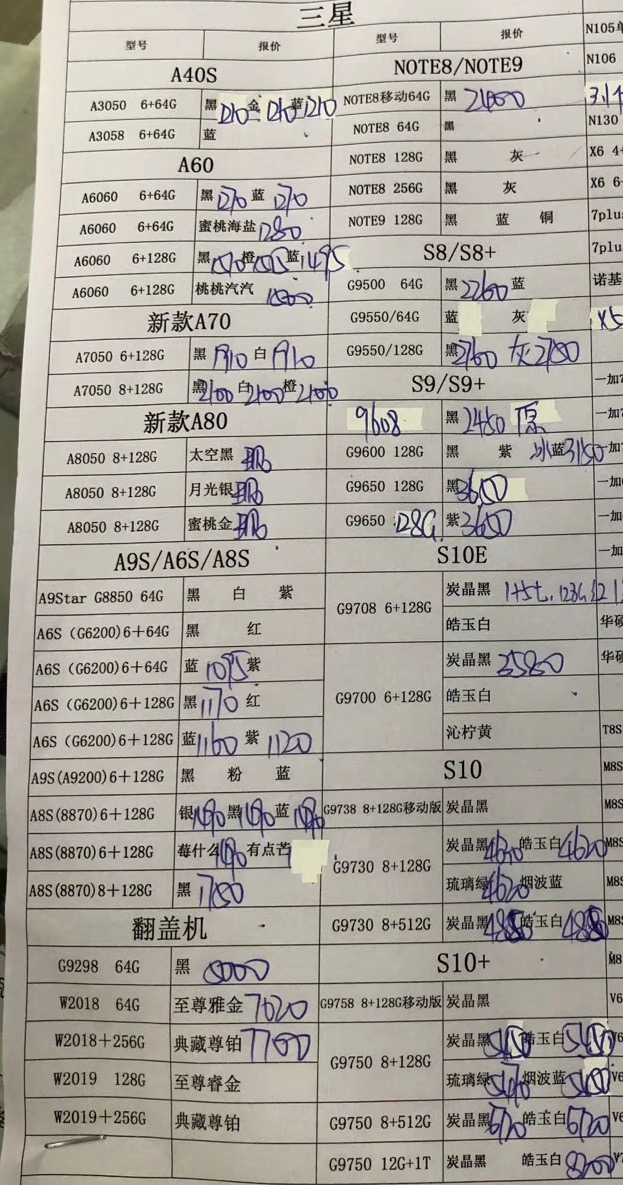 三星
型号 报价
A40S
A3050 6+64G 黑 金 蓝1210
A3058 6+64G 蓝
A60
A6060 6+64G 黑1270 蓝 1270
A6060 6+64G 蜜桃海盐1280
A6060 6+128G 黑 橙 蓝1495
A6060 6+128G 桃桃汽汽
新款A70
A7050 6+128G 黑 1910 白 1910
A7050 8+128G 黑2100 白2100 橙2100
新款A80
A8050 8+128G 太空黑
A8050 8+128G 月光银
A8050 8+128G 蜜桃金
A9S/A6S/A8S
A9Star G8850 64G 黑 白 紫
A6S (G6200)6+64G 黑 红
A6S (G6200)6+64G 蓝 1095 紫
A6S (G6200)6+128G 黑1170 红
A6S (G6200)6+128G 蓝1160 紫 1120
A9S(A9200)6+128G 黑 粉 蓝
A8S(8870)6+128G 银 黑 蓝
A8S(8870)6+128G 莓什么 有点芒
A8S(8870)8+128G 黑 1750
翻盖机
G9298 64G 黑
W2018 64G 至尊雅金 7020
W2018+256G 典藏尊铂 7700
W2019 128G 至尊睿金
W2019+256G 典藏尊铂
型号 报价
NOTE8/NOTE9
NOTE8移动64G 黑
NOTE8 64G 黑
NOTE8 128G 黑 灰
NOTE8 256G 黑 灰
NOTE9 128G 黑 蓝 铜
S8/S8+
G9500 64G 黑2260 蓝
G9550/64G 蓝 灰
G9550/128G 黑2760 灰2750
S9/S9+
9608 黑 2450 原
G9600 128G 黑 紫 冰蓝3150
G9650 128G 黑3650
G9650 128G 紫3650
S10E
G9708 6+128G 炭晶黑
皓玉白
G9700 6+128G 炭晶黑 3580
皓玉白
沁柠黄
S10
G9738 8+128G移动版 炭晶黑
G9730 8+128G 炭晶黑4620 皓玉白4620
琉璃绿4620 烟波蓝
G9730 8+512G 炭晶黑 皓玉白
S10+
G9758 8+128G移动版 炭晶黑
G9750 8+128G 炭晶黑 皓玉白
琉璃绿 烟波蓝
G9750 8+512G 炭晶黑6120 皓玉白6120
G9750 12G+1T 炭晶黑 皓玉白 8200
N105
N106
N130
X6 4
X6 6
7plu
7plu
诺基
X5
一加
一加
一加
一加
一加
一加
华硕
华硕
T8S
M8S
M8S
M8S
M8S
M8S
M8
V6
V6
V6
V6